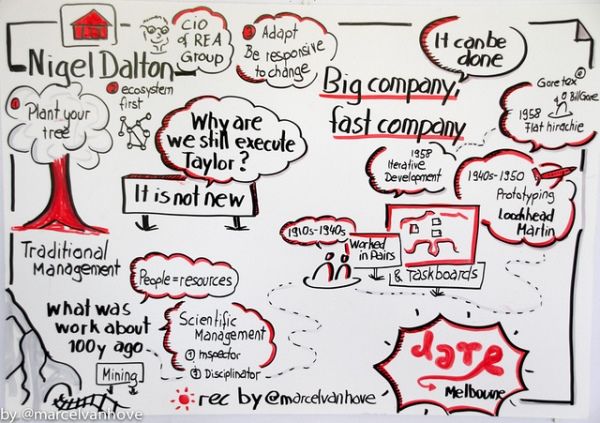 Nigel Dalton
CiO
of REA
Group
Adapt
Be responsive
to change
It can be
done
Big company,
fast company
ecosystem
first
Plant your
tree
Why are
we still execute
Taylor?
It is not new
Goretex
Bill Gore
1958
Flat hirachie
1958
Iterative
Development
1940s-1950
Prototyping
Loockhead
Martin
1910s-1940s
Worked
in Pairs
& Taskboards
Traditional
Management
People = resources
what was
work about
100y ago
Mining
Scientific
Management
1 Inspector
2 Disciplinator
dare
Melboune
rec by @marcelvanhove
by @marcelvanhove